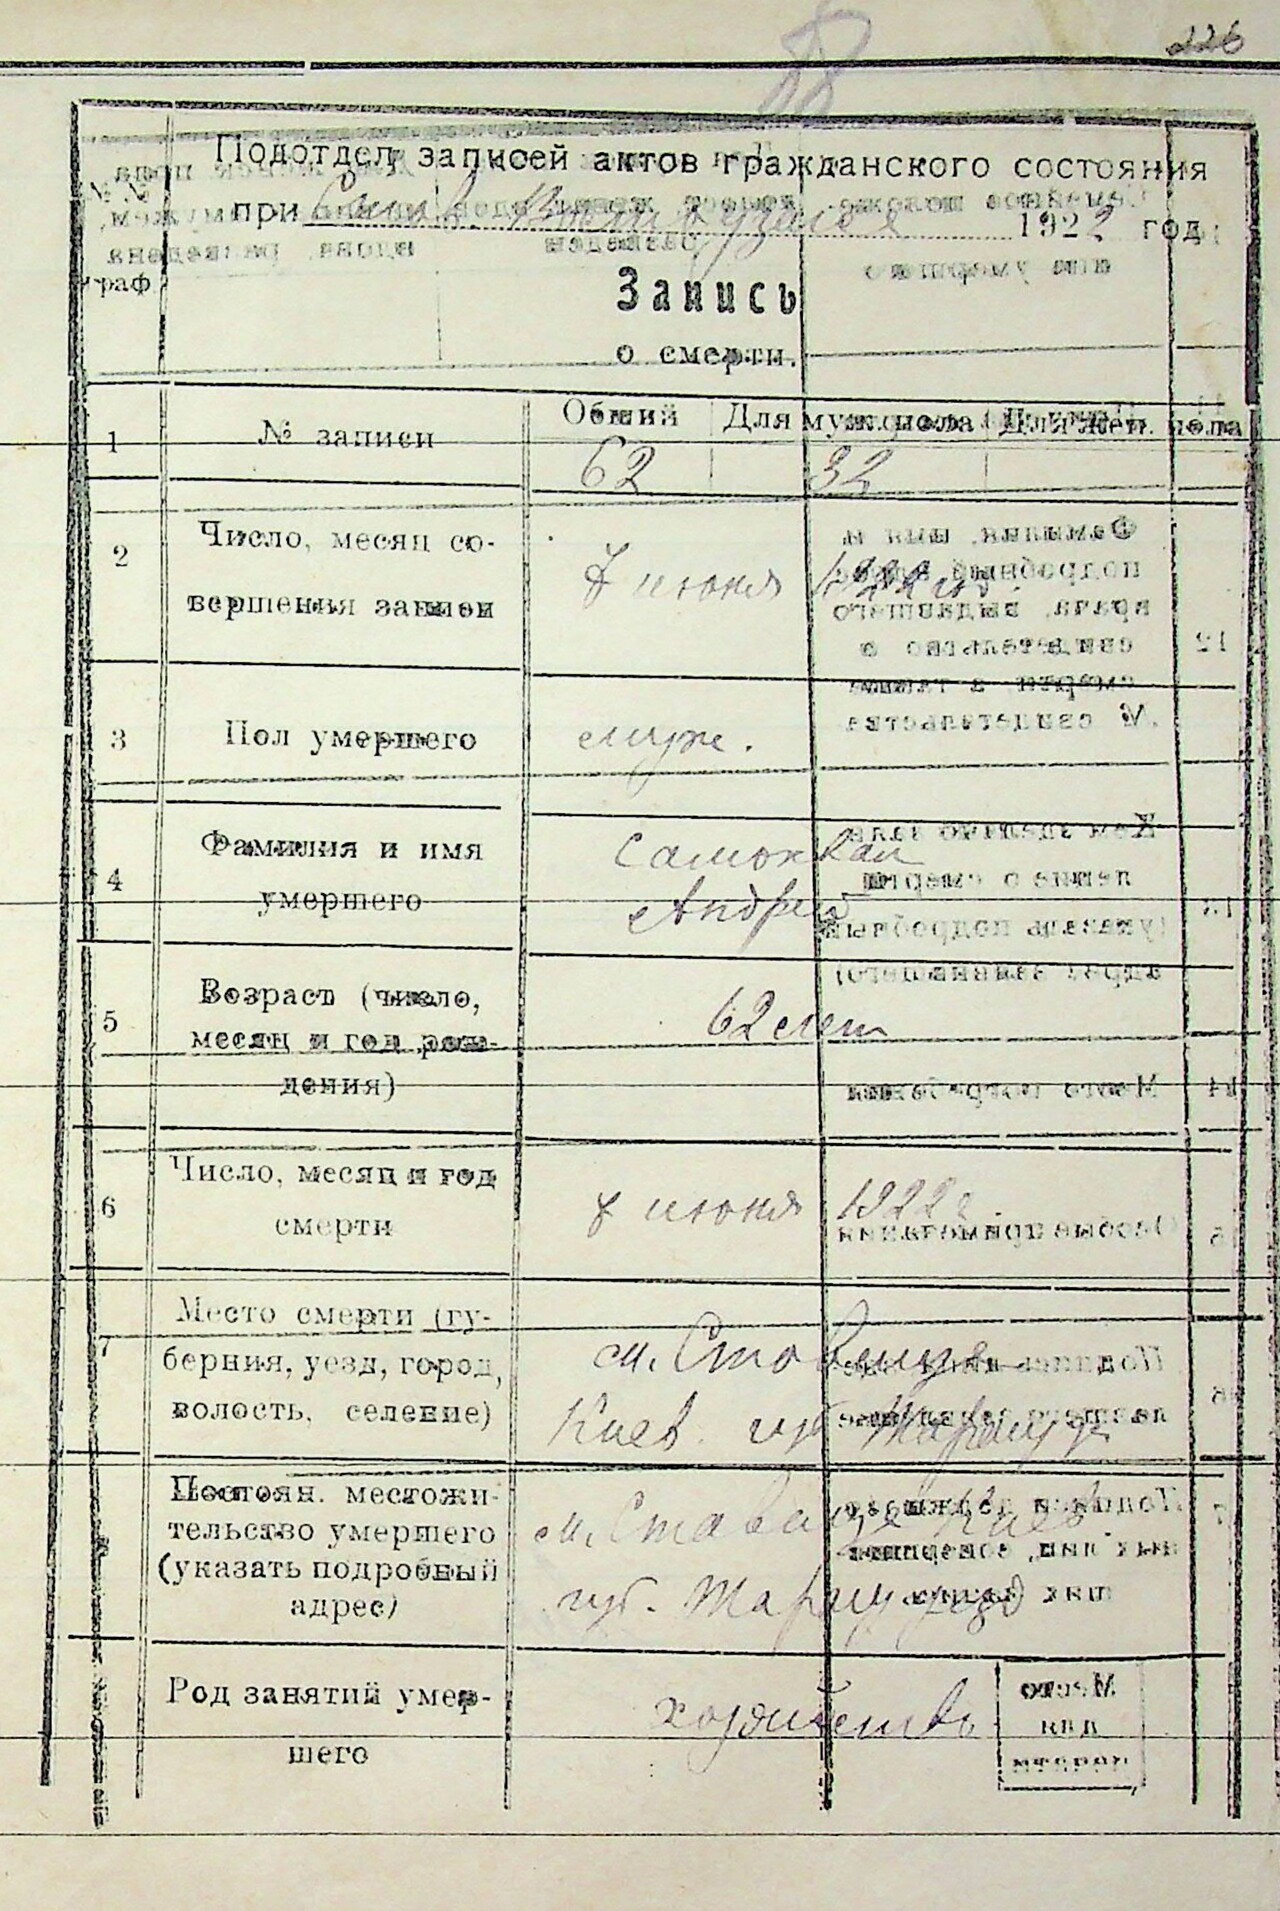 226
88
Подотдел записей актов гражданского состояния
при 1922 год
№№
граф
Запись
о смерти.
1 № записи Общий Для муж. пола Для жен. пола
62 32
2 Число, месяц со-
вершенья записи
7 июня 1922 год.
3 Пол умершего муж.
4 Фамилия и имя
умершего
Самохвал
Андрей
5 Возраст (число,
месяц и год рож-
дения)
62 лет
6 Число, месяц и год
смерти
7 июня 1922 г.
7 Место смерти (гу-
берния, уезд, город,
волость, селение)
м. Ставище
Киев. губ Таращ у
Постоян. местожи-
тельство умершего
(указать подробный
адрес)
м. Ставище Киев
губ. Таращ уезд
Род занятий умер-
шего
хозяйство